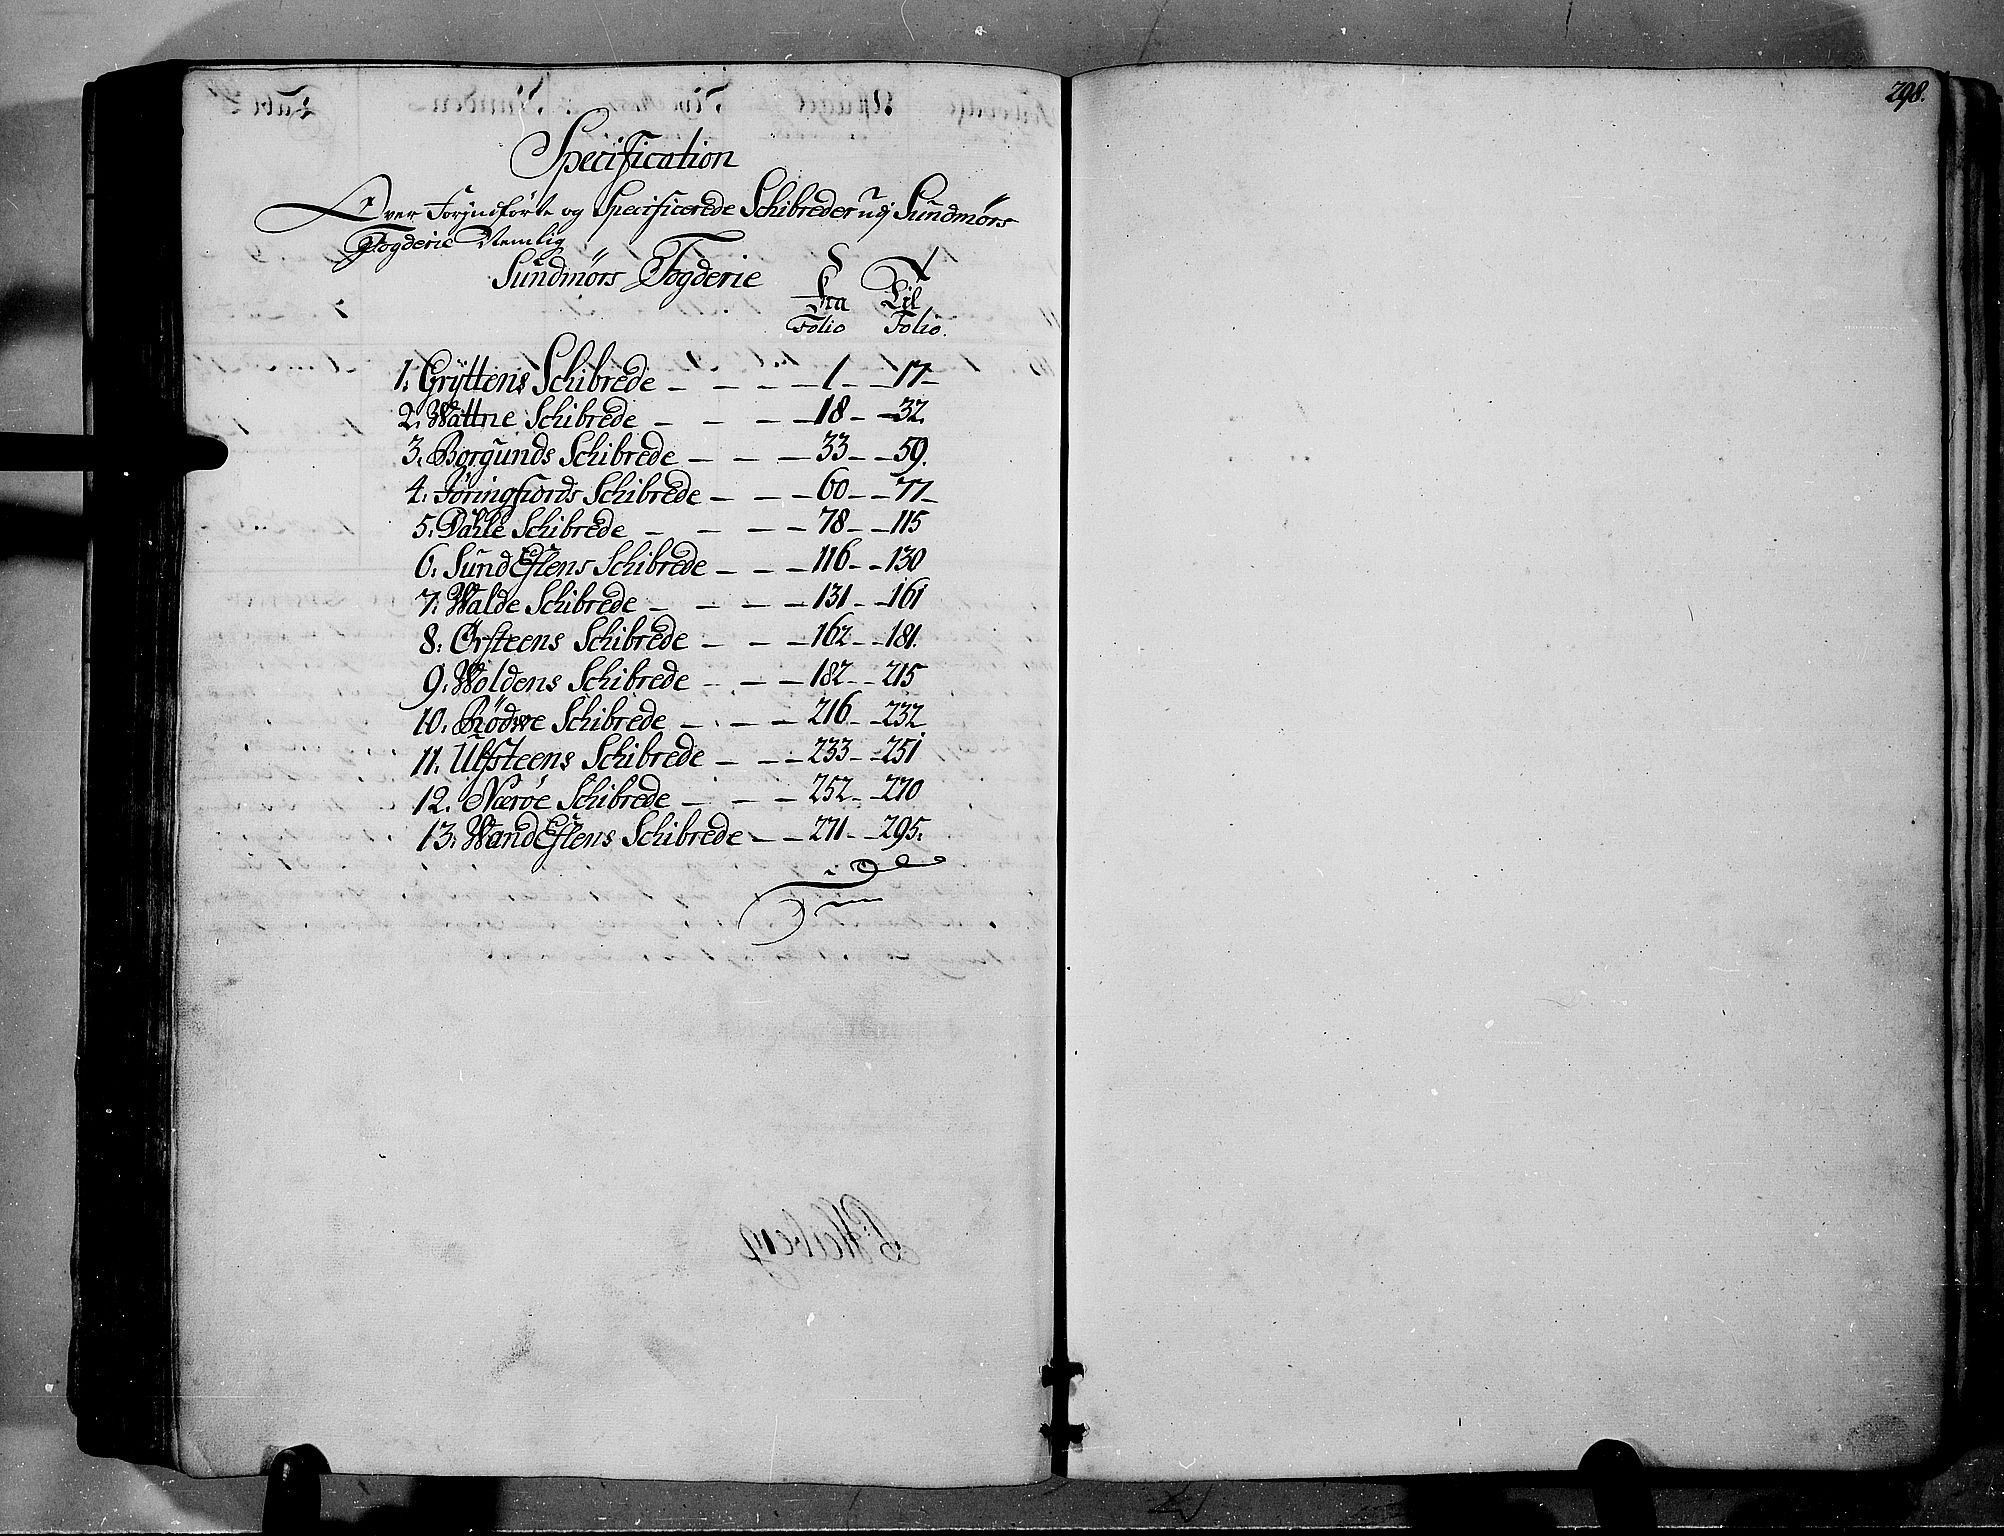 298.
Specification
Over Forindførte og Specificerede Schibreder udj Sundmørs
Fogderie Nemlig
Sundmørs Fogderie
Fra Til
Folio Folio.
1. Grÿttens Schibrede — — — 1 — 17
2. Wattne Schibrede — — — 18 — 32.
3. Borgunds Schibrede — — — 33 — 59.
4. Jøringfiords Schibrede — — 60 — 77
5. Dahle Schibrede — — — 78 — 115
6. SundEflens Schibrede — — — 116 — 130
7. Walde Schibrede — — — 131 — 161
8. Ørsteens Schibrede — — — 162 — 181.
9. Woldens Schibrede — — — 182 — 215
10. Rødwe Schibrede — — — 216 — 232
11. Ulfsteens Schibrede — — — 233 — 251
12. Nærøe Schibrede — — — 252 — 270
13. WandEflens Schibrede — — 271 — 295.